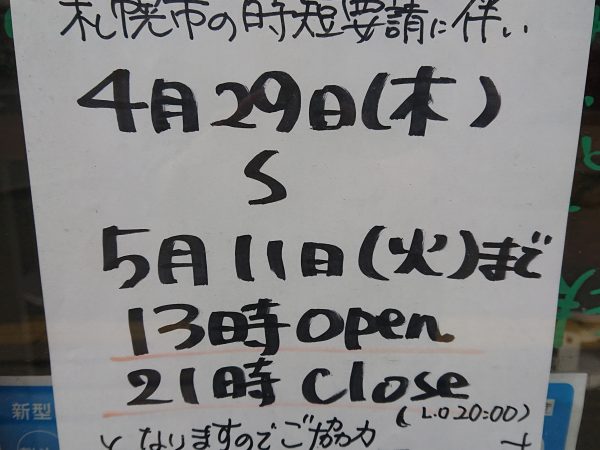 札幌市の時短要請に伴い
4月29日(木)
〜
5月11日(火)まで
13時 Open
21時 Close
(L.O 20:00)
となりますのでご協力
新型